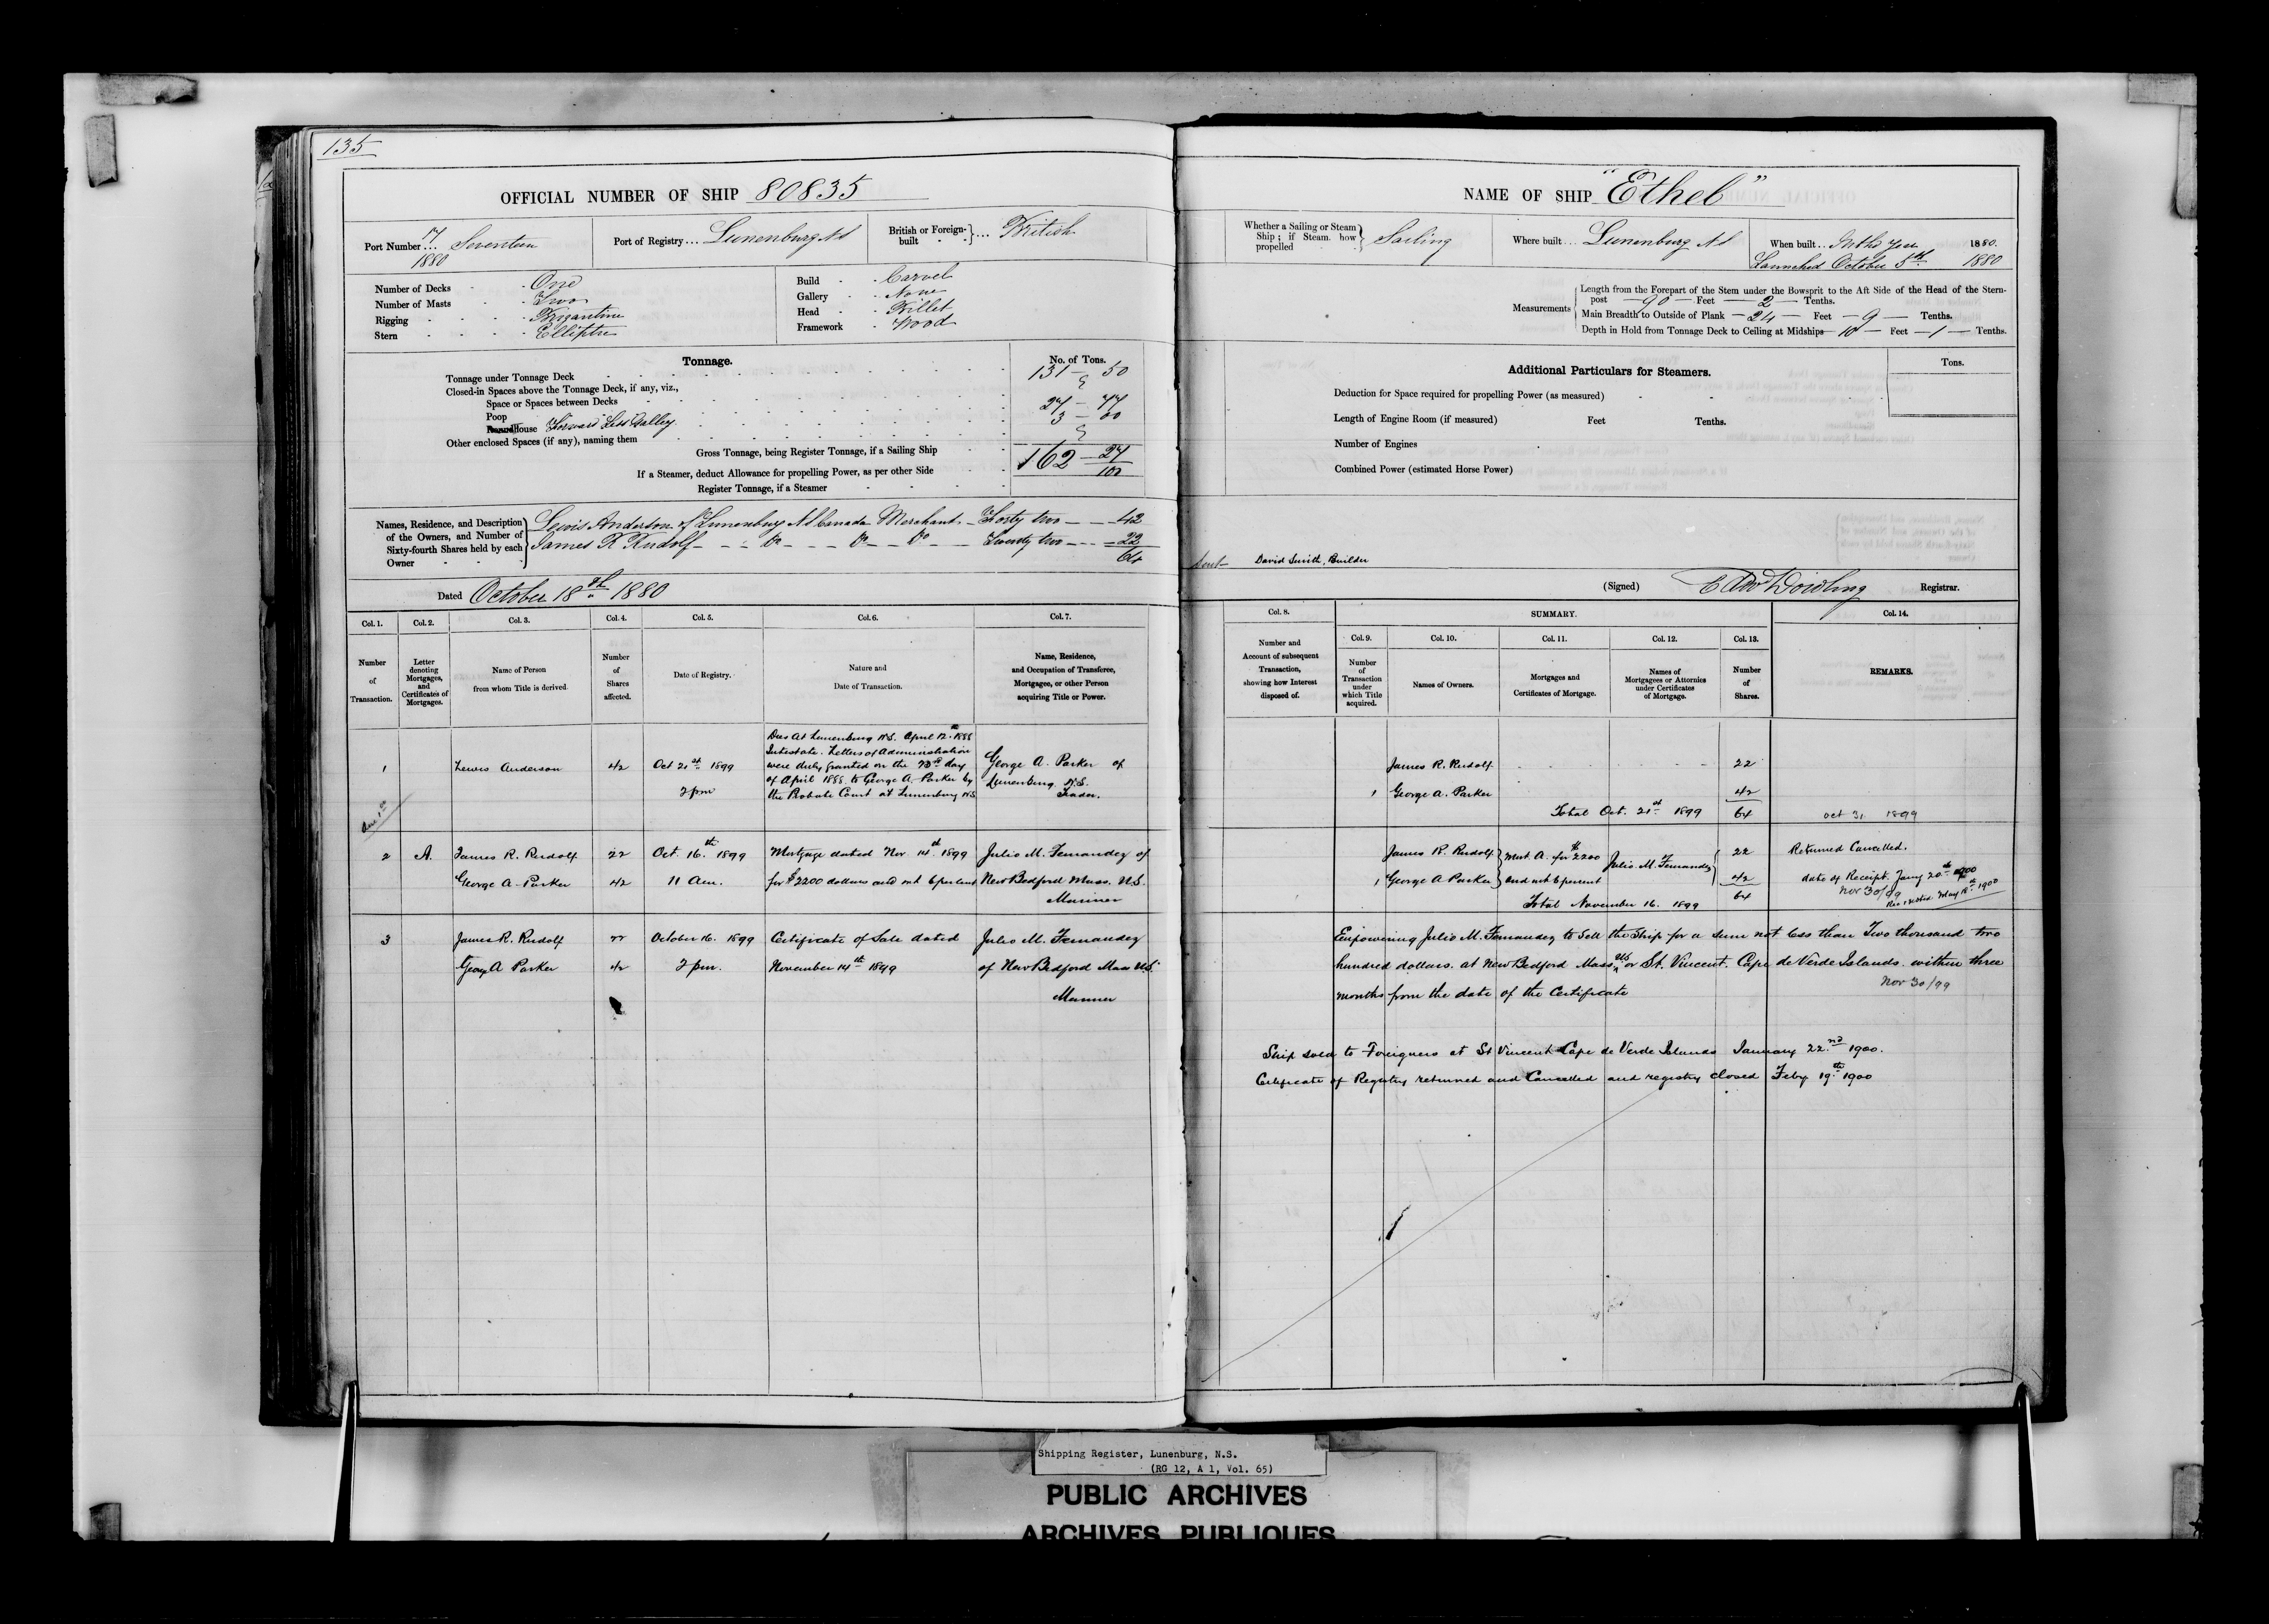 135
OFFICIAL NUMBER OF SHIP 80835
Port Number ... 17/1880 Seventeen
Port of Registry ... Lunenburg NS
British or Foreign-built ... British
Number of Decks One
Number of Masts Two
Rigging Brigantine
Stern Elliptic
Build Carvel
Gallery None
Head Billet
Framework Wood
Tonnage. No. of Tons.
Tonnage under Tonnage Deck 131 - 50
Closed-in Spaces above the Tonnage Deck, if any, viz.,
Space or Spaces between Decks
Poop 27 - 77
House Forward Less Galley 3 - 00
Other enclosed Spaces (if any), naming them
Gross Tonnage, being Register Tonnage, if a Sailing Ship 162 - 27/100
If a Steamer, deduct Allowance for propelling Power, as per other Side
Register Tonnage, if a Steamer
Names, Residence, and Description of the Owners, and Number of Sixty-fourth Shares held by each Owner
Lewis Anderson of Lunenburg NS Canada Merchant - Forty two - - 42
James R Rudolf - - - Do - - - Do - - Do - - Twenty two - - - 22
64
Dated October 18th 1880
Col. 1. Col. 2. Col. 3. Col. 4. Col. 5. Col. 6. Col. 7.
Number of Transaction.
Letter denoting Mortgages, and Certificates of Mortgages.
Name of Person from whom Title is derived.
Number of Shares affected.
Date of Registry.
Nature and Date of Transaction.
Name, Residence, and Occupation of Transferee, Mortgagee, or other Person acquiring Title or Power.
1 Lewis Anderson 42 Oct 21st 1899 2 pm
Dies at Lunenburg N.S. April 12th 1888
Intestate. Letters of Administration
were duly granted on the day
of April 1888 to George A. Parker by
the Probate Court at Lunenburg N.S.
George A. Parker of
Lunenburg N.S.
Trader.
2 A. James R. Rudolf 22 Oct. 16.th 1899 Mortgage dated Nov 14th 1899 Julio M. Fernandez of
George A. Parker 42 11 Am. for $2200 dollars and int 6 per cent New Bedford Mass. U.S.
Mariner
3 James R. Rudolf 22 October 16. 1899 Certificate of Sale dated Julio M. Fernandez
George A Parker 42 2 pm. November 14th 1899 of New Bedford Mass U.S.
Mariner
NAME OF SHIP "Ethel"
Whether a Sailing or Steam Ship; if Steam how propelled Sailing
Where built ... Lunenburg NS
When built .. In this year 1880.
Launched October 5th 1880
Measurements
Length from the Forepart of the Stem under the Bowsprit to the Aft Side of the Head of the Stern-
post - 90 - Feet - 2 - Tenths.
Main Breadth to Outside of Plank - 24 - Feet - 9 - Tenths.
Depth in Hold from Tonnage Deck to Ceiling at Midships - 10 - Feet - 1 - Tenths.
Additional Particulars for Steamers. Tons.
Deduction for Space required for propelling Power (as measured)
Length of Engine Room (if measured) Feet Tenths.
Number of Engines
Combined Power (estimated Horse Power)
David Smith, Builder
(Signed) Registrar.
Col. 8. SUMMARY. Col. 14.
Col. 9. Col. 10. Col. 11. Col. 12. Col. 13.
Number and Account of subsequent Transaction, showing how Interest disposed of.
Number of Transaction under which Title acquired.
Names of Owners.
Mortgages and Certificates of Mortgage.
Names of Mortgagees or Attornies under Certificates of Mortgage.
Number of Shares.
REMARKS.
James R. Rudolf 22
1 George A. Parker 42
Total Oct. 21st 1899 64 Oct 31 1899
James R. Rudolf Mort. A. for $2200 Julio M. Fernandez 22 Returned Cancelled.
1 George A Parker and int 6 percent 42 date of Receipt. Jany 20th 1900
Total November 16. 1899 64 Nov 30/99
Empowering Julio M. Fernandez to Sell the Ship for a sum not less than Two thousand two
hundred dollars. at New Bedford Mass US or St. Vincent. Cape de Verde Islands. within three
months from the date of the Certificate Nov 30/99
Ship sold to Foreigners at St Vincent Cape de Verde Islands January 22.nd 1900.
Certificate of Registry returned and Cancelled and registry closed Feby 19.th 1900
Shipping Register, Lunenburg, N.S.
(RG 12, A 1, Vol. 65)
PUBLIC ARCHIVES
ARCHIVES PUBLIQUES